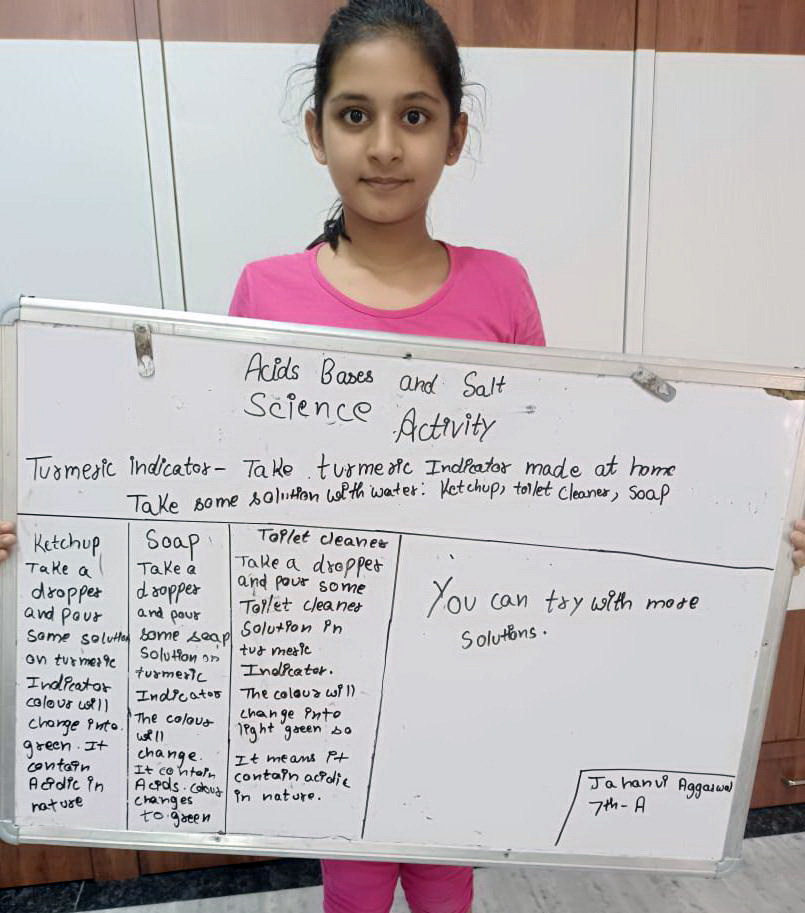 Acids Bases and Salt
Science Activity
Turmeric indicator- Take turmeric Indicator made at home
Take some solution with water: Ketchup, toilet cleaner, soap
Ketchup
Take a
dropper
and pour
some solution
on turmeric
Indicator
colour will
change into
green. It
contain
Acidic in
nature
Soap
Take a
dropper
and pour
some soap
solution on
turmeric
Indicator
The colour
will
change.
It contain
Acids. colour
changes
to green
Toilet cleaner
Take a dropper
and pour some
Toilet cleaner
Solution in
turmeric
Indicator.
The colour will
change into
light green so
It means it
contain acidic
in nature.
You can try with more
solutions.
Jahanvi Aggarwal
7th- A